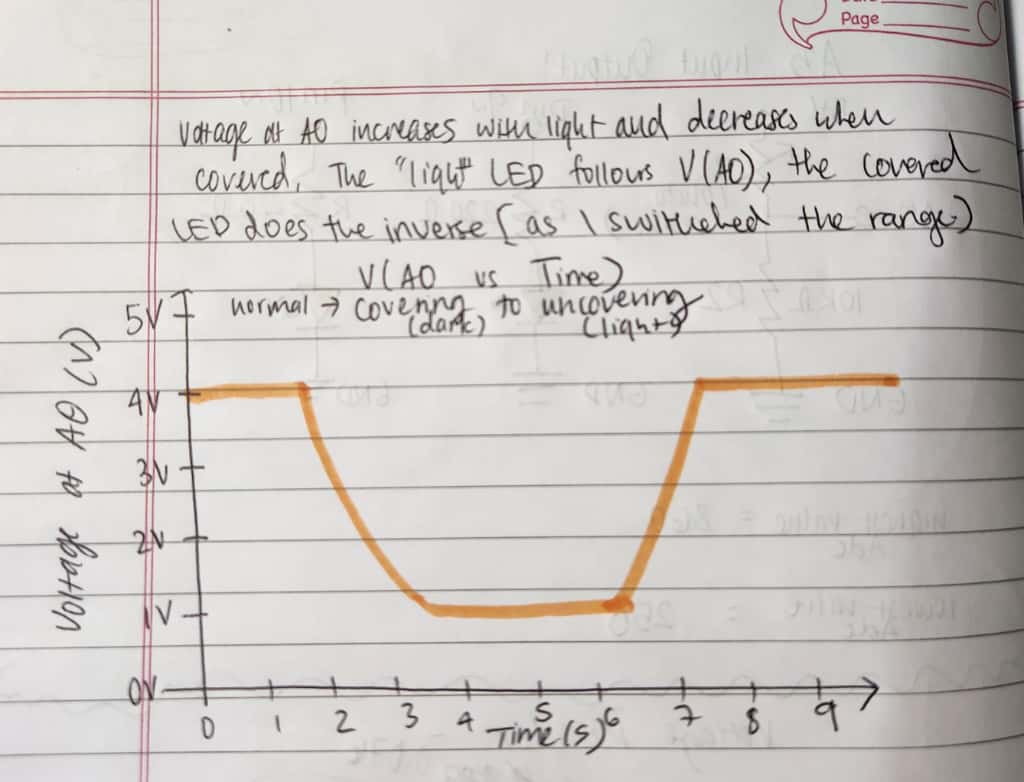 Page
Voltage at A0 increases with light and decreases when
covered. The "light" LED follows V(A0), the covered
LED does the inverse (as I switched the range)
V(A0 vs Time)
normal → covering to uncovering
(dark) (light)
Voltage at A0 (V)
5V
4V
3V
2V
1V
0V
0 1 2 3 4 5 6 7 8 9
Time (s)